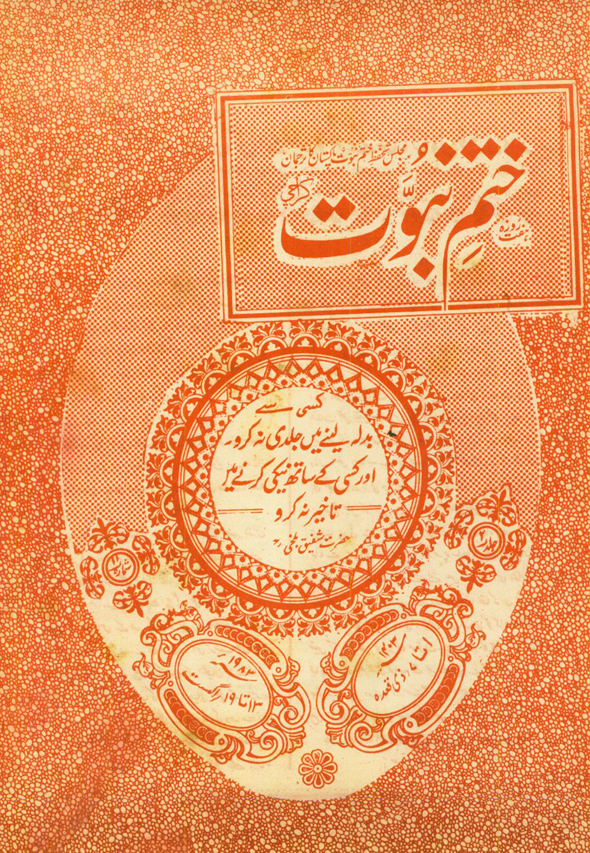 مجلس تحفظ ختم نبوت پاکستان کا ترجمان
ہفت روزہ
ختمِ نبوّت
کراچی
کسی سے
بدلہ لینے میں جلدی نہ کرو۔
اور کسی کے ساتھ نیکی کرنے میں
تاخیر نہ کرو
حضرت شفیق بلخی رح
جلد ۲
شمارہ
۱۴۰۳ھ
۱ تا ۷؍ ذی قعدہ
۱۹۸۳ء
۱۳ تا ۱۹ اگست